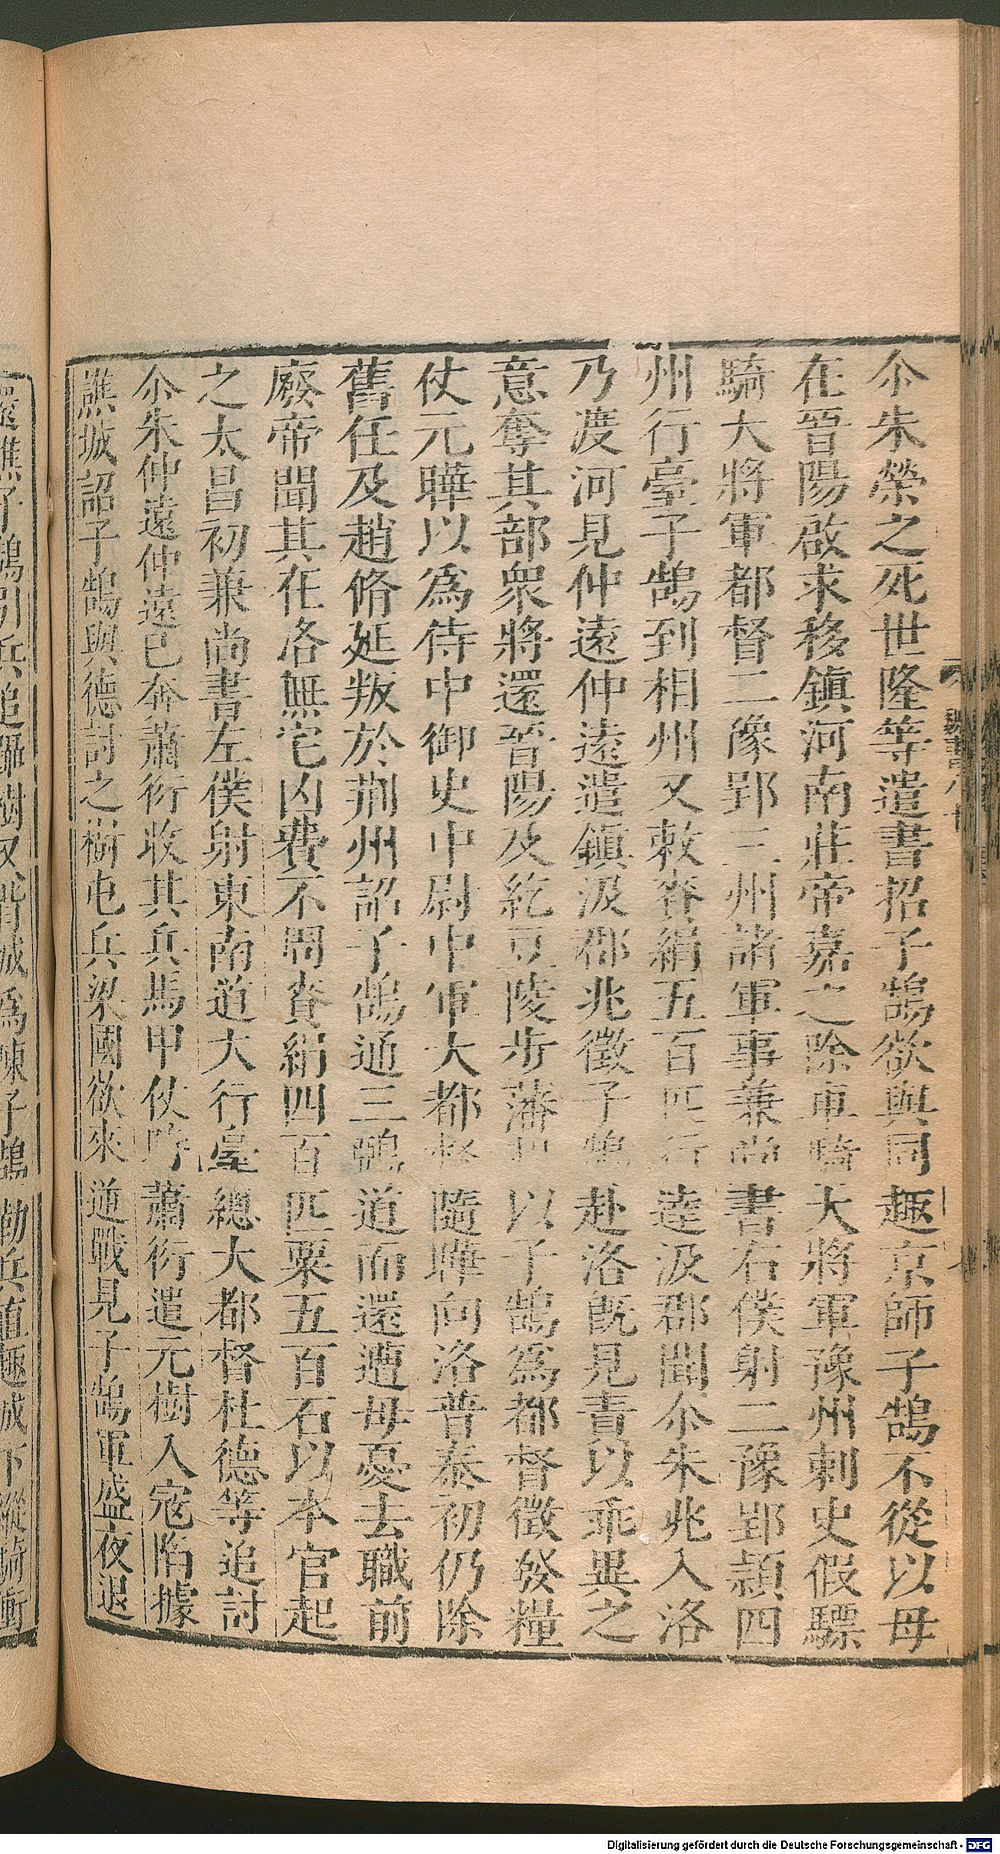 尒朱榮之死世隆等遣書招子鵠欲與同趣京師子鵠不從以母
在晉陽啟求移鎮河南莊帝嘉之除車騎大將軍豫州刺史假驃
騎大將軍都督二豫郢三州諸軍事兼尚書右僕射二豫郢潁四
州行臺子鵠到相州又敕賚絹五百匹行達汲郡聞尒朱兆入洛
乃渡河見仲遠仲遠遣鎮汲郡兆徵子鵠赴洛既見責以乖異之
意奪其部衆將還晉陽及紇豆陵步藩
以子鵠爲都督徵發糧
仗元曄以爲侍中御史中尉中軍大都督隨曄向洛普泰初仍除
舊任及趙脩延叛於荊州詔子鵠通三鵶道而還遭母憂去職前
廢帝聞其在洛無宅凶費不周賚絹四百匹粟五百石以本官起
之太昌初兼尚書左僕射東南道大行臺總大都督杜德等追討
尒朱仲遠仲遠已奔蕭衍收其兵馬甲仗時蕭衍遣元樹入寇陷據
譙城詔子鵠與德討之樹屯兵梁國欲來逆戰見子鵠軍盛夜退
還譙子鵠引兵追躡樹又背城爲陳子鵠勒兵直趣城下縱騎衝
魏書八十
Digitalisierung gefördert durch die Deutsche Forschungsgemeinschaft - DFG